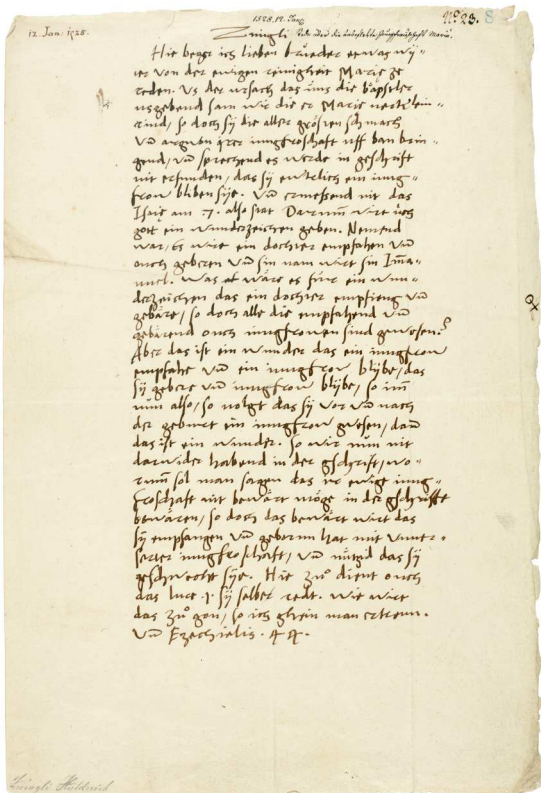 1528. 12. Jan.
No 23. 8
12. Jan. 1528.
Zwingli Rede über die unbefleckte Jungfrauschaft Mariä.
Hie beger ich lieben brueder etwas wy-
ter von der ewigen reinigkeit Marie ze
reden. Us der ursach das uns die bäpstler
usgebend sam wir die er Marie verkklein-
rind, so doch sy die aller grösten schmach
uñ irer iungfroschaft uff ban brin-
gend, uñ sprechend es werde in geschrift
nit erfunden, das sy ewklich ein iung-
frow bliben sye. Uñ ermessend nit das
Isaie am 7. also stat Darumm wirt üch
gott ein wunderzeichen geben. Nemend
war, Es wirt ein dochter empfahen uñ
ouch geberen uñ sin nam wirt sin Ima-
nuel. Was wäre es für ein wun-
derzeichen das ein dochter empfieng uñ
gebäre, so doch alle die empfahend uñ
gebärend ouch iungfrowen sind gewesen?
Aber das ist ein wunder das ein iungfrow
empfahe uñ ein iungfrow blybe, das
sy gebere uñ iungfrow blybe, so imm
nun also, so volgt das sy vor uñ nach
der geburt ein iungfrow gwesen, dañ
das ist ein wunder. So wir nun nit
darwider habend in der gschrift, wo-
rumm sol man sagen das ir ewige iung-
froschaft nit bewärt möge in der gschrifft
bewären, so doch das bewärt wirt das
sy empfangen uñ geborn hat mit unver-
serter iungfroschaft, uñ nützid das sy
geschwecht sye. Hie zuo dient ouch
das Luce .1. sy selber redt. Wie wirt
das zuo gon, so ich ghein man erkenn.
Uñ Ezechielis . 44 .
Zwingli Huldreich